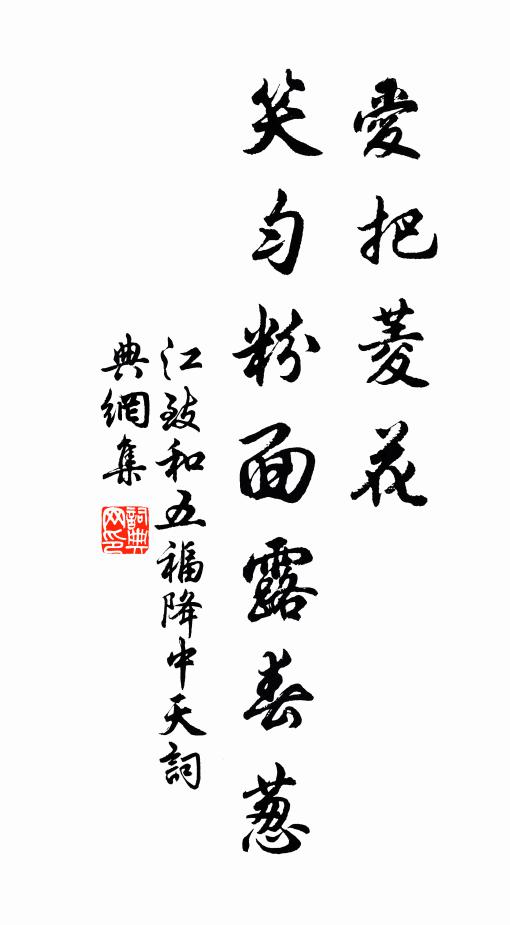 愛把菱花
笑勻粉面露春蔥
江致和五福降中天詞
典網集
詞典网印